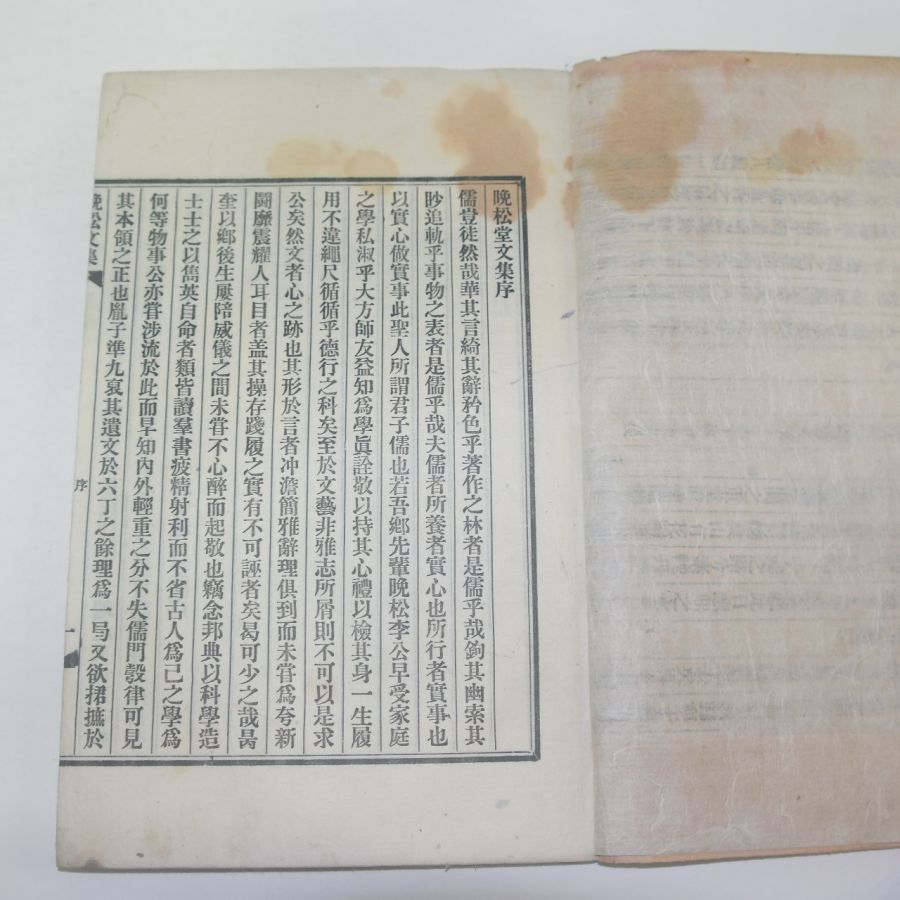 晚松堂文集序
儒豈徒然哉華其言綺其辭矜色乎著作之林者是儒乎哉鉤其幽索其
眇追軌乎事物之表者是儒乎哉夫儒者所養者實心也所行者實事也
以實心做實事此聖人所謂君子儒也若吾鄉先輩晚松李公早受家庭
之學私淑乎大方師友益知爲學眞詮敬以持其心禮以檢其身一生履
用不違繩尺循循乎德行之科矣至於文藝非雅志所屑則不可以是求
公矣然文者心之跡也其形於言者冲澹簡雅辭理俱到而未甞爲夸新
鬪靡震耀人耳目者盖其操存踐履之實有不可誣者矣曷可少之哉昺
奎以鄉後生屢陪威儀之間未甞不心醉而起敬也竊念邦典以科學造
士士之以雋英自命者類皆讀羣書疲精射利而不省古人爲己之學爲
何等物事公亦甞涉流於此而早知內外輕重之分不失儒門彀律可見
其本領之正也胤子準九哀其遺文於六丁之餘理爲一局又欲捃摭於
晚松文集
序
一